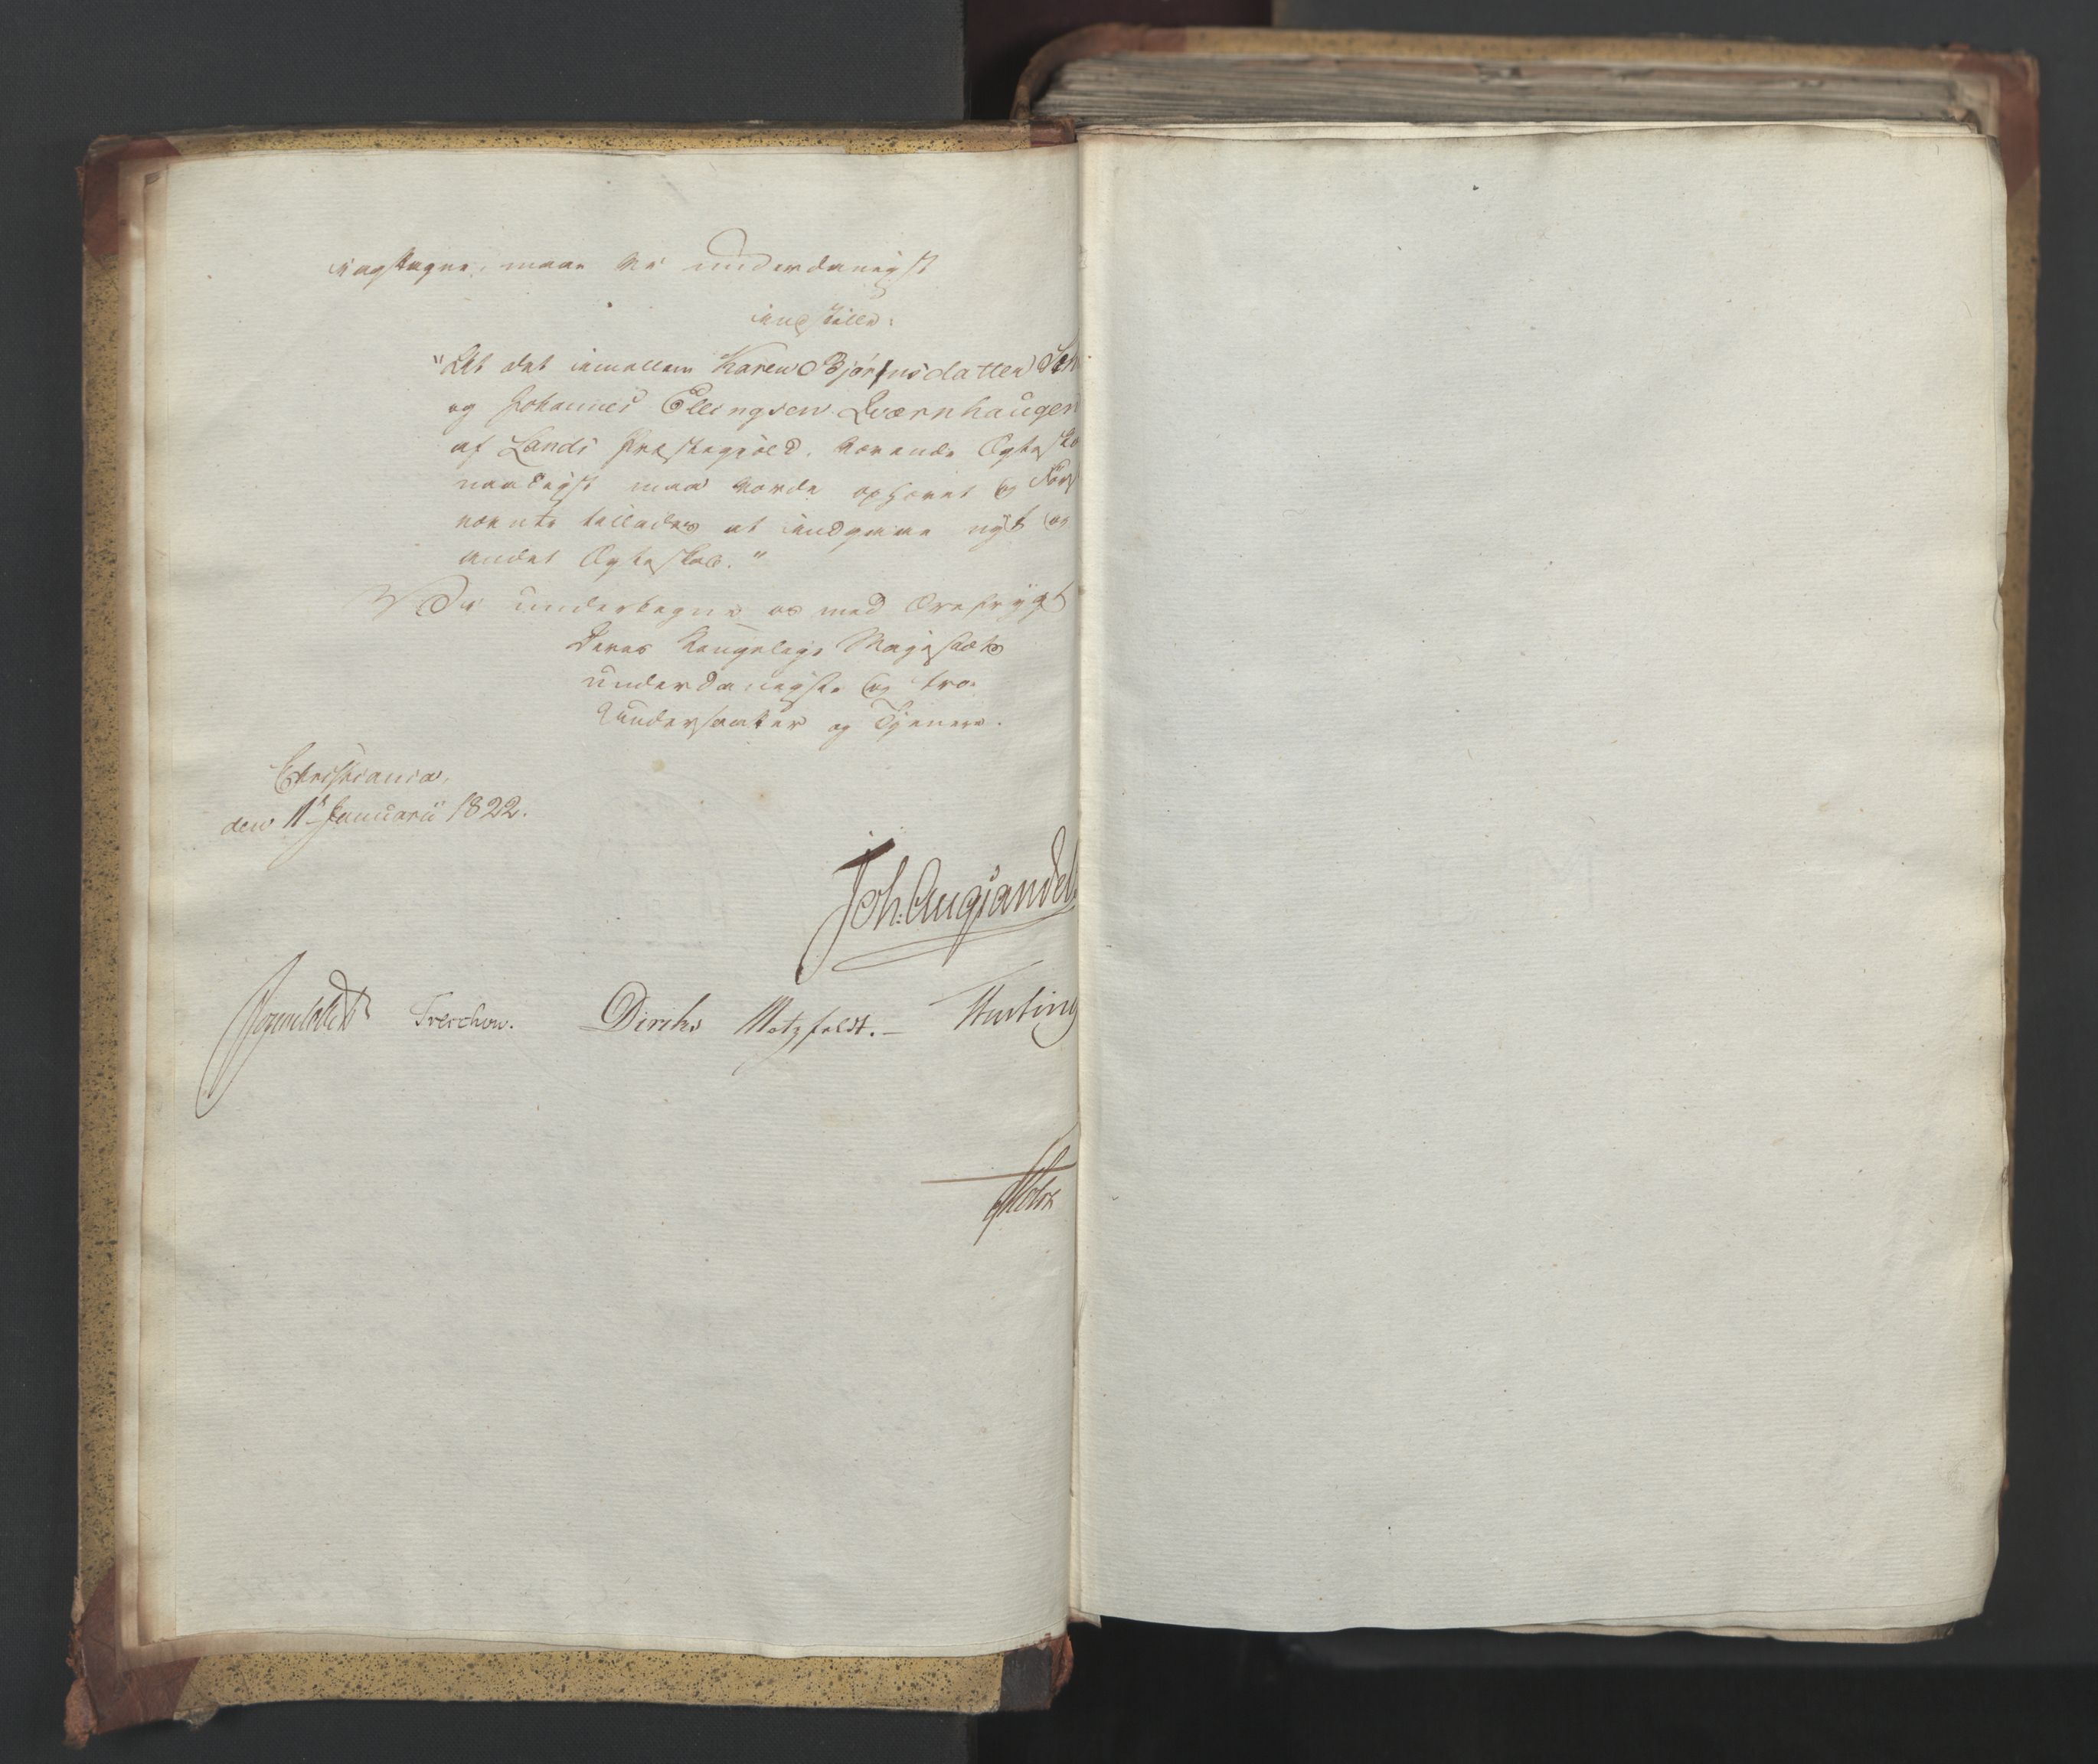 iagttagne, maae vi underdanigst
indstille:
"At det imellem Karen Bjørnsdatter
og Johannes Ellingsen Qværnhaugen
af Lands Præstegjeld, værende Ægteska
naadigst maa vorde ophævet og Først
nævnte tillades at indgaae nyt og
andet Ægteskab."
Vi undertegne os med Ærefrygt
Deres Kongelige Majestæts
underdanigste og tro-
Undersaatter og Tjenere.
Christiania,
den 11t Januarii 1822.
Joh: Aug: Sandels
Sommerhielm Treschow. Diriks Motzfeldt.— Hysting
Holst